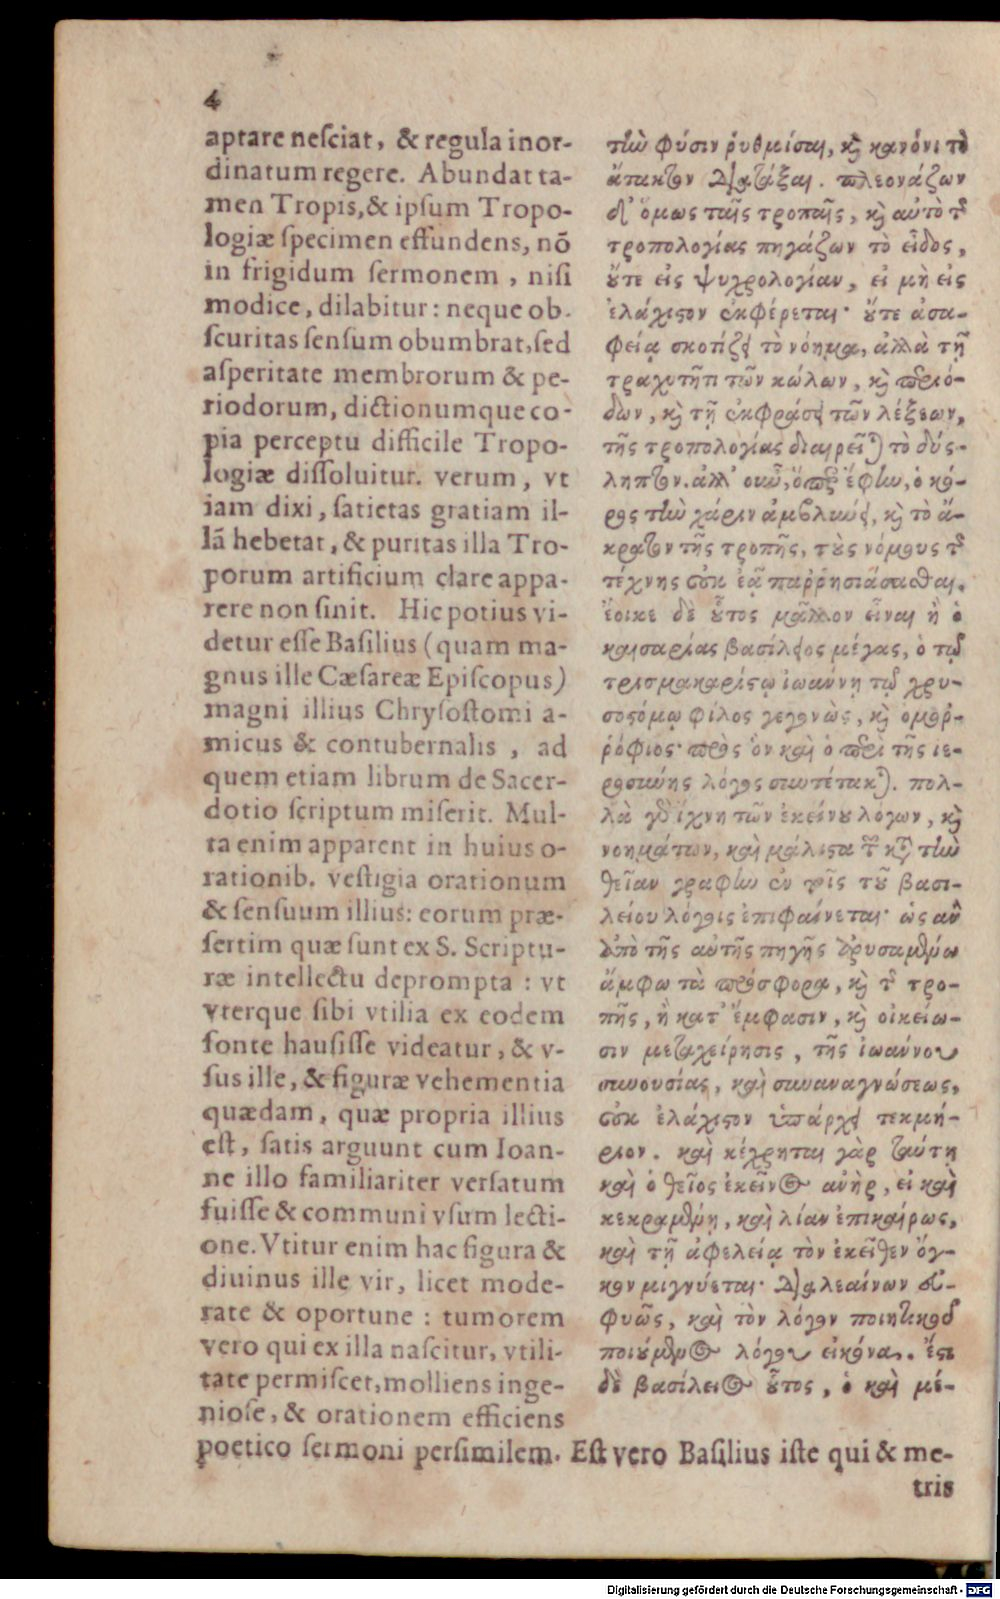 4
aptare nesciat, & regula inor-
dinatum regere. Abundat ta-
men Tropis, & ipsum Tropo-
logiæ specimen effundens, nõ
in frigidum sermonem, nisi
modice, dilabitur: neque ob-
scuritas sensum obumbrat, sed
asperitate membrorum & pe-
riodorum, dictionumque co-
pia perceptu difficile Tropo-
logiæ dissoluitur. verum, vt
iam dixi, satietas gratiam il-
lã hebetat, & puritas illa Tro-
porum artificium clare appa-
rere non sinit. Hic potius vi-
detur esse Basilius (quam ma-
gnus ille Cæsareæ Episcopus)
magni illius Chrysostomi a-
micus & contubernalis, ad
quem etiam librum de Sacer-
dotio scriptum miserit. Mul-
ta enim apparent in huius o-
rationib. vestigia orationum
& sensuum illius: eorum præ-
sertim quæ sunt ex S. Scriptu-
ræ intellectu deprompta: vt
vterque sibi vtilia ex eodem
fonte hausisse videatur, & v-
sus ille, & figuræ vehementia
quædam, quæ propria illius
est, satis arguunt cum Ioan-
ne illo familiariter versatum
fuisse & communi vsum lecti-
one. Vtitur enim hac figura &
diuinus ille vir, licet mode-
rate & oportune: tumorem
vero qui ex illa nascitur, vtili-
tate permiscet, molliens inge-
niose, & orationem efficiens
poetico sermoni persimilem. Est vero Basilius iste qui & me-
tris
τὴν φύσιν ῥυθμίσαι, καὶ κανόνι τὸ
ἄτακτον διατάξαι. πλεονάζων
δ' ὅμως ταῖς τροπαῖς, καὶ αὐτὸ τῆς
τροπολογίας πηγάζων τὸ εἶδος,
οὔτε εἰς ψυχρολογίαν, εἰ μὴ εἰς
ἐλάχιστον ἐκφέρεται· οὔτε ἀσα-
φείᾳ σκοτίζει τὸ νόημα, ἀλλὰ τῇ
τραχυτῆτι τῶν κώλων, καὶ περιό-
δων, καὶ τῇ ἐκφράσει τῶν λέξεων,
τῆς τροπολογίας διαιρεῖται τὸ δύς-
ληπτον. ἀλλ' οὖν, ὅπερ ἔφην, ὁ κό-
ρος τὴν χάριν ἀμβλύνει, καὶ τὸ ἄ-
κρατον τῆς τροπῆς, τοὺς νόμους τῆς
τέχνης οὐκ ἐᾷ παῤῥησιάσασθαι.
ἔοικε δὲ οὗτος μᾶλλον εἶναι ἢ ὁ
καισαρίας βασίλειος μέγας, ὁ τῷ
τρισμακαρίστῳ ἰωάννῃ τῷ χρυ-
σοστόμῳ φίλος γεγονὼς, καὶ ὁμορ-
ρόφιος· πρὸς ὃν καὶ ὁ περὶ τῆς ἱε-
ρωσύνης λόγος συντέτακται. πολ-
λὰ γὰρ ἴχνη τῶν ἐκείνου λόγων, καὶ
νοημάτων, καὶ μάλιστα τῶν κατὰ τὴν
θεῖαν γραφὴν ἐν τοῖς τοῦ βασι-
λείου λόγοις ἐπιφαίνεται· ὡς ἂν
ἀπὸ τῆς αὐτῆς πηγῆς ἀρυσαμένω
ἄμφω τὰ πρόσφορα, καὶ τῆς τρο-
πῆς, ἡ κατ' ἔμφασιν, καὶ οἰκείω-
σιν μεταχείρησις, τῆς ἰωάννου
συνουσίας, καὶ συναναγνώσεως,
οὐκ ἐλάχιστον ὑπάρχει τεκμή-
ριον. καὶ κέχρηται γὰρ ταύτῃ
καὶ ὁ θεῖος ἐκεῖνος ἀνὴρ, εἰ καὶ
κεκραμένῃ, καὶ λίαν ἐπικαίρως,
καὶ τῇ ἀφελείᾳ τὸν ἐκεῖθεν ὄγ-
κον μιγνύεται· διαλεαίνων εὐ-
φυῶς, καὶ τὸν λόγον ποιητικοῦ
ποιούμενος λόγου εἰκόνα. ἔστι
δὲ βασίλειος οὗτος, ὁ καὶ μέ-
Digitalisierung gefördert durch die Deutsche Forschungsgemeinschaft - DFG